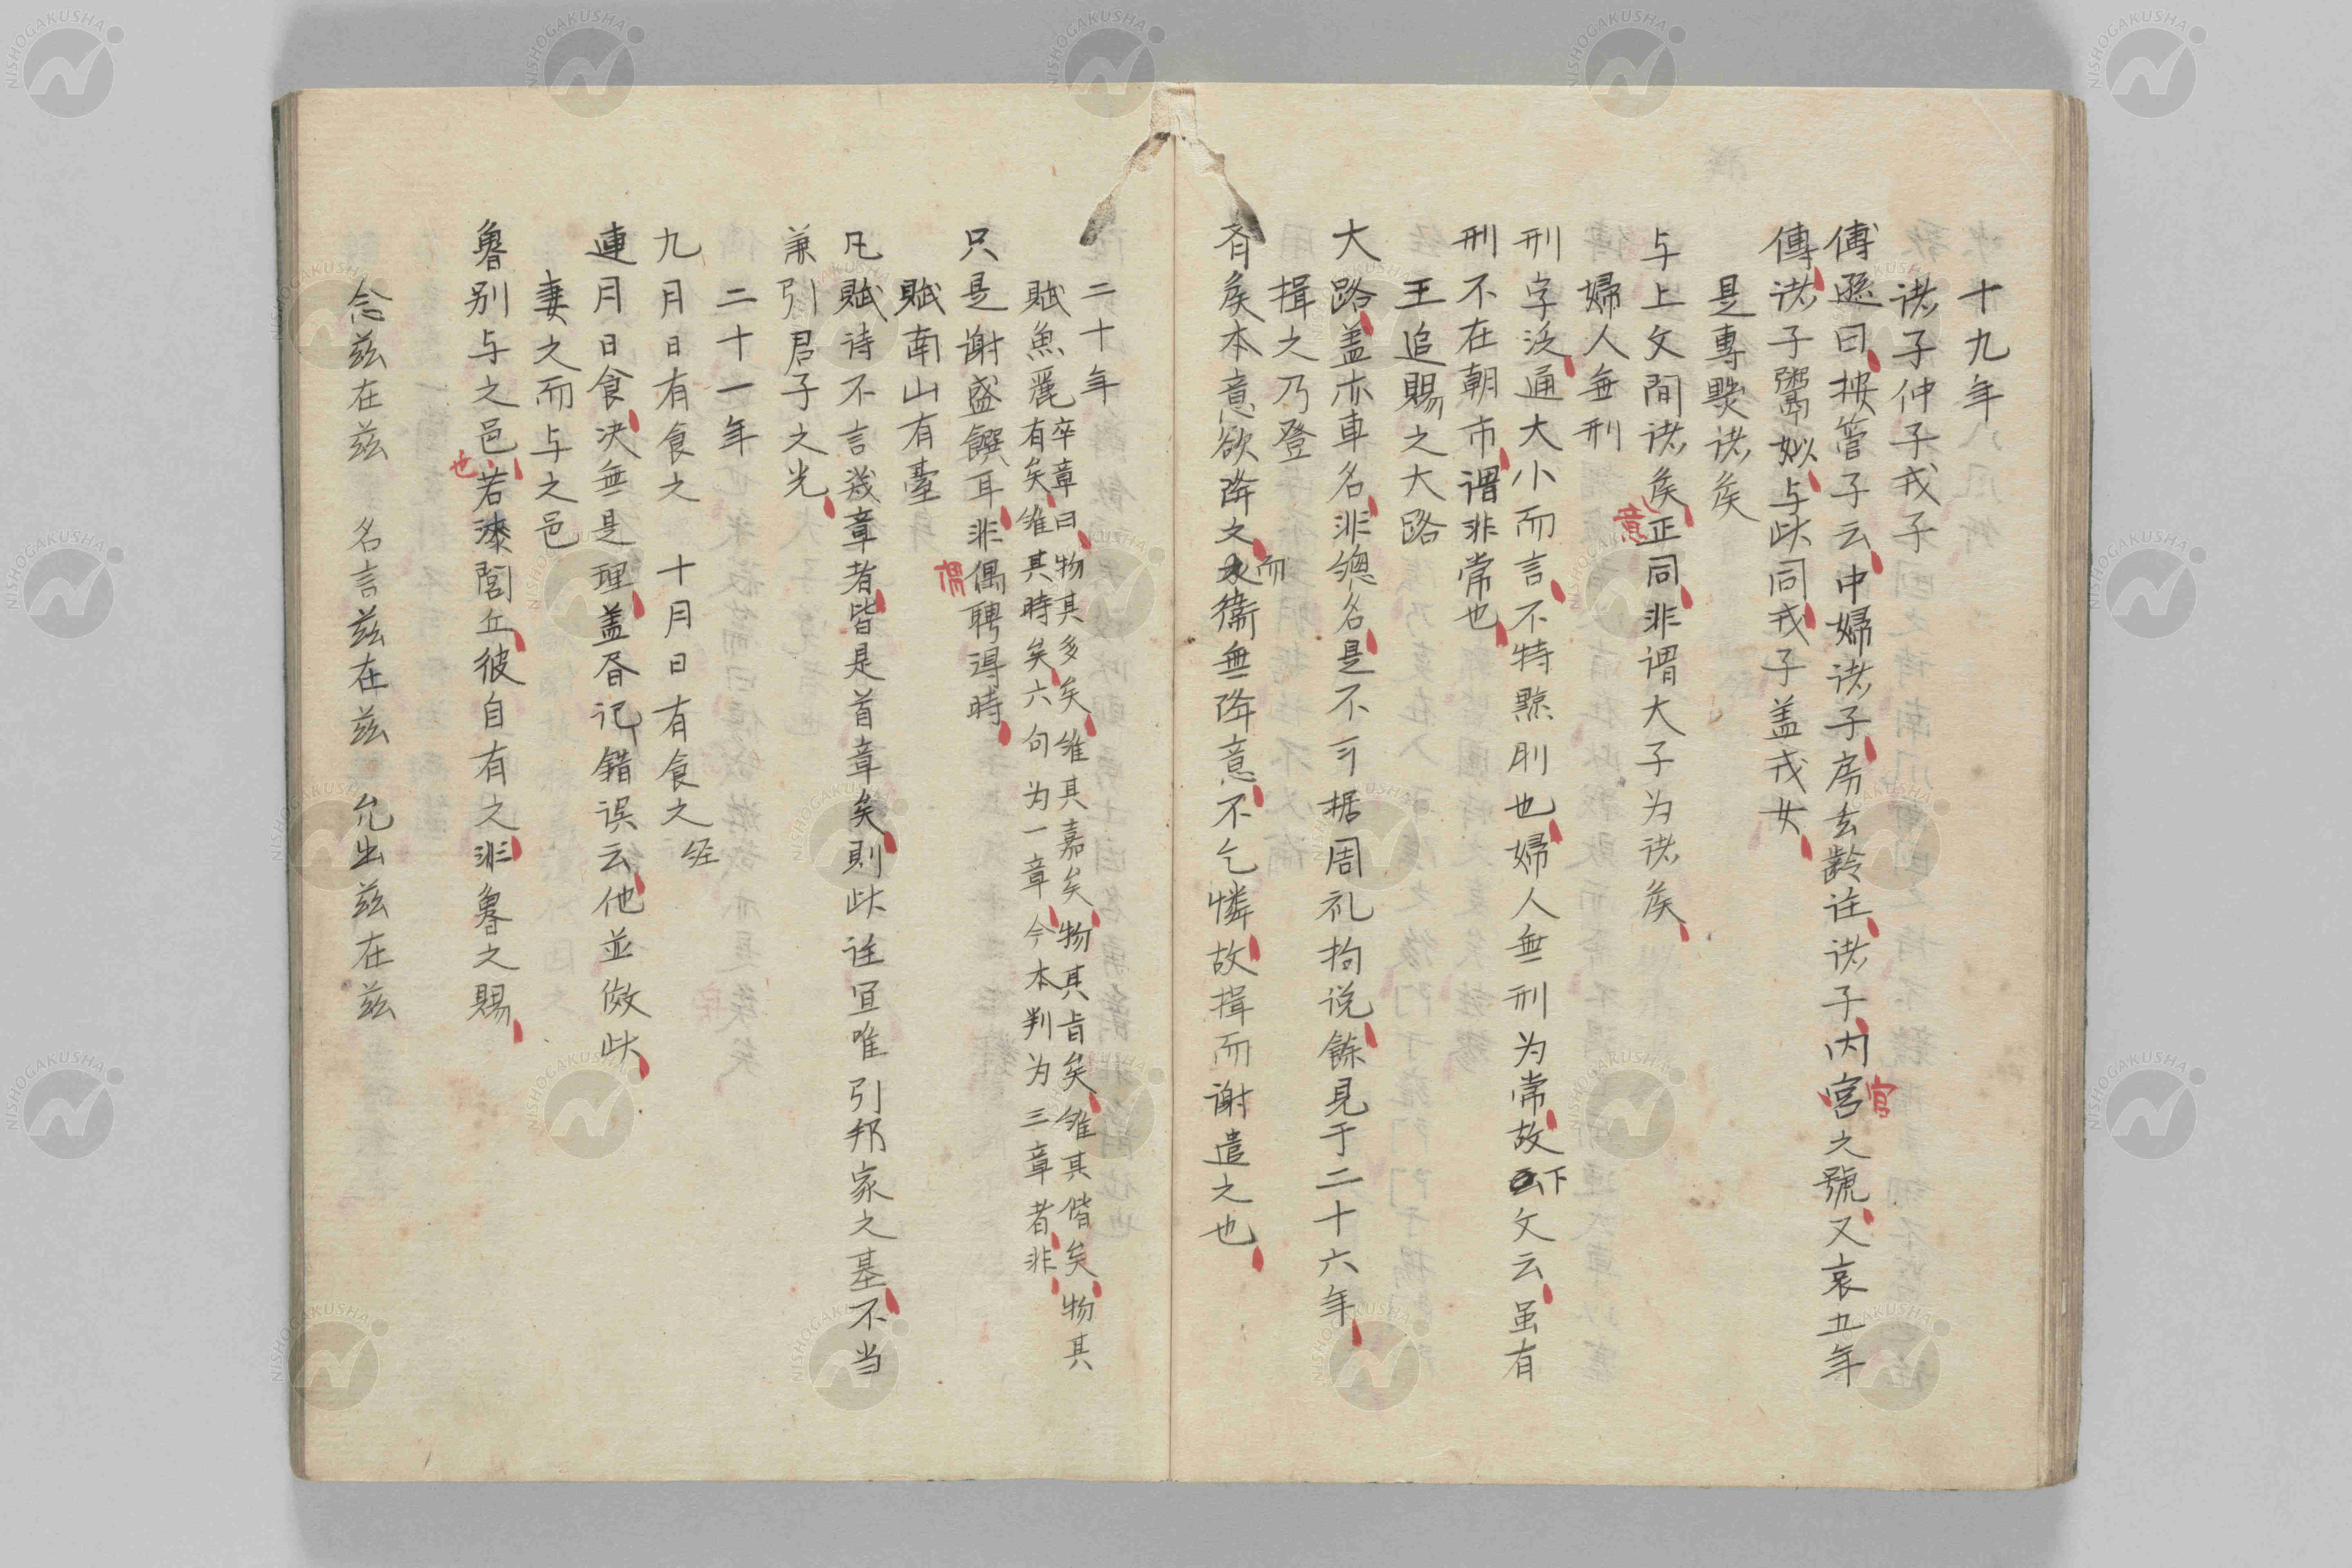 十九年
諸子仲子戎子
傅遜曰按管子云中婦諸子房玄齡注諸子内宮之號又哀五年
官
傳諸子鬻姒与此同戎子盖戎女
是專黜諸矦
与上文間諸矦正同非谓大子为诸矦
意
婦人無刑
刑字泛通大小而言不特黥刖也婦人無刑为常故下文云虽有
刑不在朝市谓非常也
王追賜之大路
大路盖亦車名非總名是不可据周礼拘说餘見于二十六年
揖之乃登
齐矦本意欲降之而衞無降意不乞憐故揖而谢遣之也
二十年
賦魚麗卒章曰物其多矣雏其嘉矣物其旨矣雏其偕矣物其
有矣雏其時矣六句为一章今本判为三章者非
只是谢盛饌耳非偶聘得時
賦南山有臺
凡賦诗不言幾章者皆是首章矣則此注宜唯引邦家之基不当
兼引君子之光
二十一年
九月日有食之 十月日有食之 经
連月日食决無是理盖昏记錯误云他並倣此
妻之而与之邑
魯别与之邑若漆閭丘彼自有之非魯之賜
也
念兹在兹 名言兹在兹 允出兹在兹
NISHOGAKUSHA